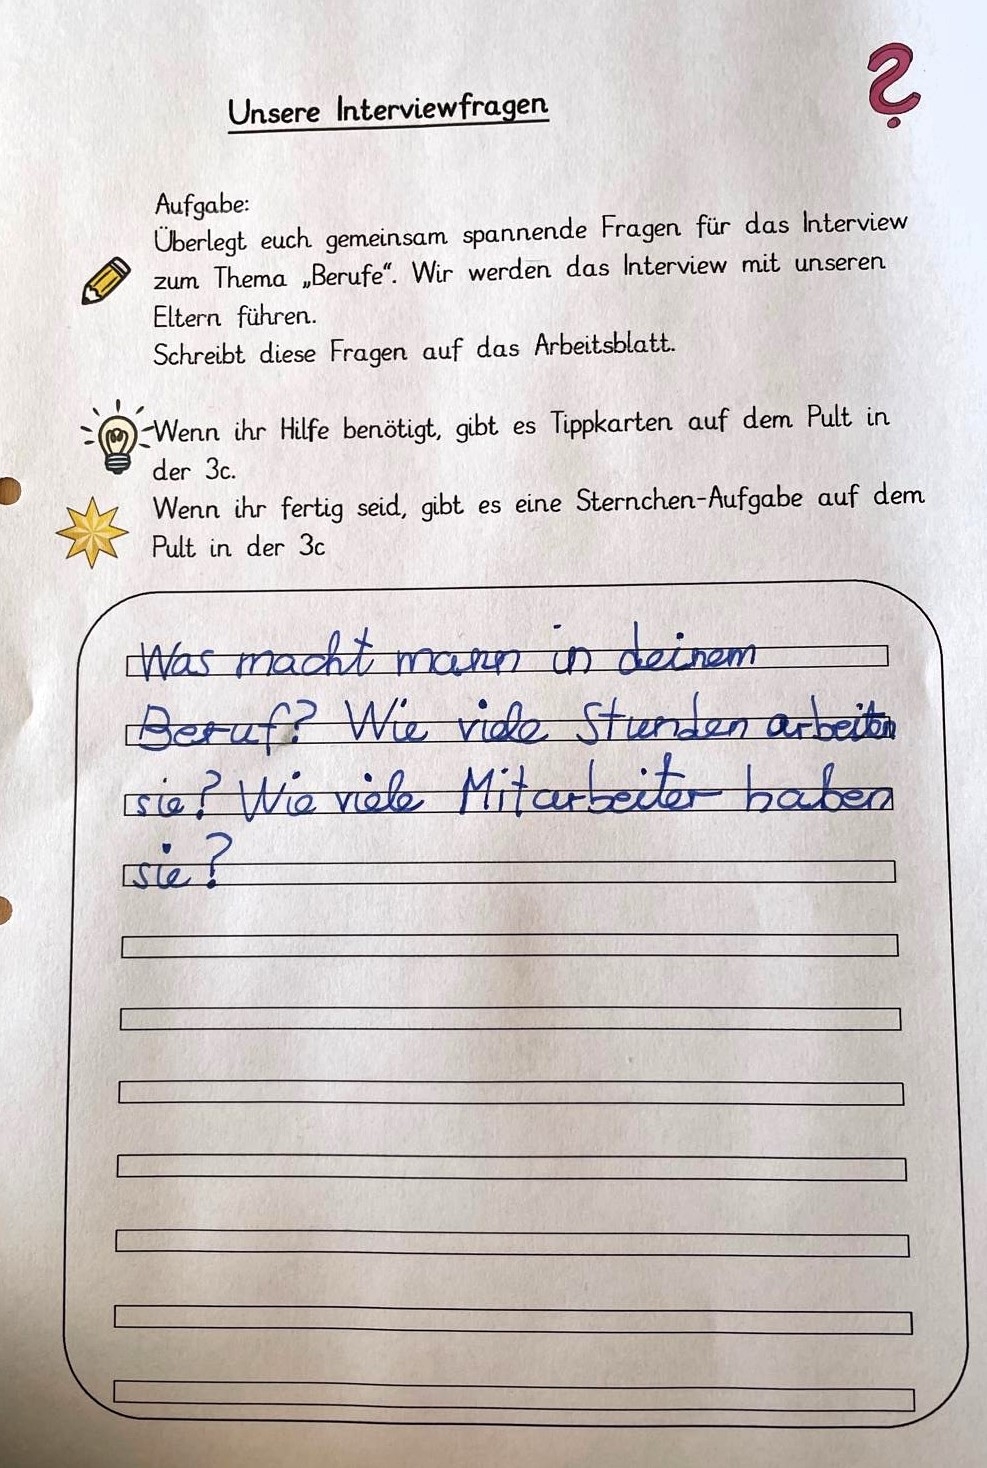 Unsere Interviewfragen
Aufgabe:
Überlegt euch gemeinsam spannende Fragen für das Interview
zum Thema „Berufe“. Wir werden das Interview mit unseren
Eltern führen.
Schreibt diese Fragen auf das Arbeitsblatt.
Wenn ihr Hilfe benötigt, gibt es Tippkarten auf dem Pult in
der 3c.
Wenn ihr fertig seid, gibt es eine Sternchen-Aufgabe auf dem
Pult in der 3c
Was macht mann in deinem
Beruf? Wie viele Stunden arbeiten
sie? Wie viele Mitarbeiter haben
sie?